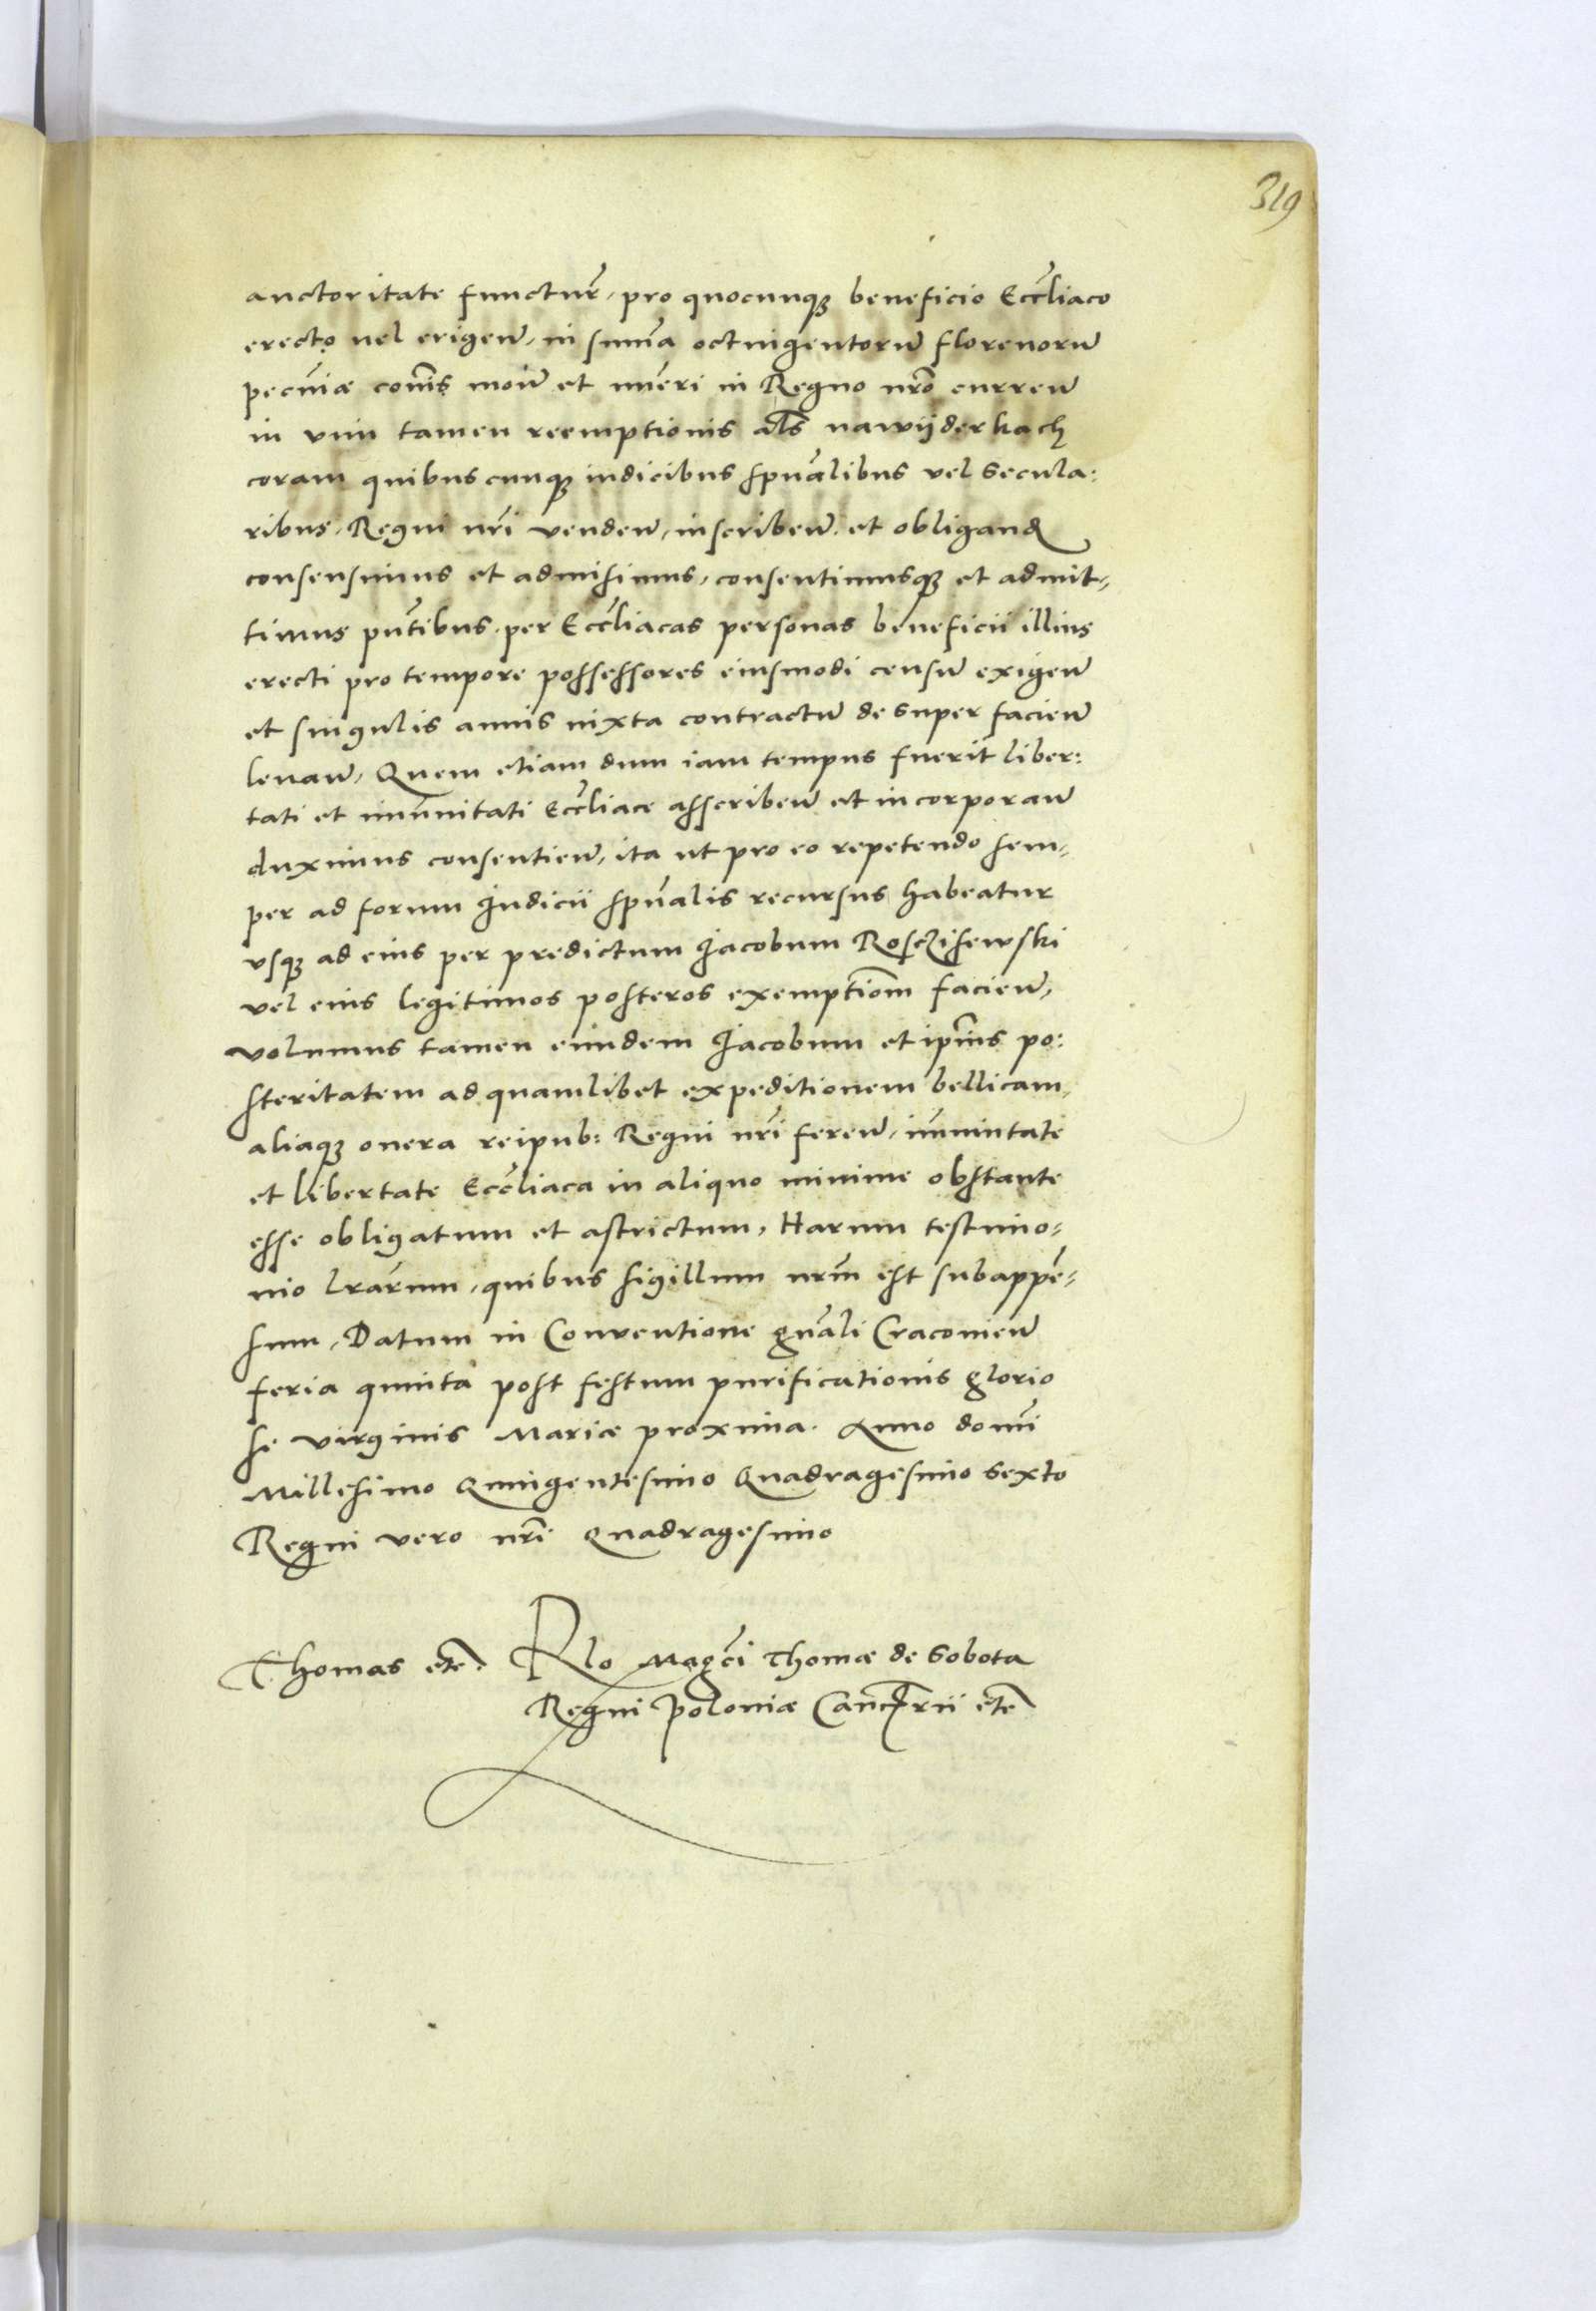 319
auctoritate functur̃, pro quocunqꝫ beneficio Eccl̃iaco
erecto uel erigen̄, in sum̃a octuigentorum̄ florenorum̄
pecuniæ com̃is mon̄ et nũeri in Regno nr̃o curren̄
in vim tamen reemptionis al̃s nawÿderkach
coram quibuscunqꝫ iudicibus spũalibus vel secula:
ribus, Regni nr̃i venden̄, inscriben̄, et obligand̄
consensimus et admisimus, consentimusqꝫ et admit-
timus pñtibus, per Eccl̃iacas personas beneficii illius
erecti pro tempore possessores eiusmodi censum̄ exigen̄
et singulis annis iuxta contractum̄ desuper facien̄
leuan̄, Quem etiam dum iam tempus fuerit liber:
tati et im̃unitati Eccl̃iace asscriben̄ et incorporan̄
duximus consentien̄, ita ut pro eo repetendo sem-
per ad forum Iudicii spũalis recursus habeatur
vsqꝫ ad eius per predictum Iacobum Rosczisewski
vel eius legitimos posteros exemptiõm facien̄,
volumus tamen eundem Iacobum et ip̃ius po:
steritatem ad quamlibet expeditionem bellicam,
aliaqꝫ onera reipub: Regni nr̃i feren̄, im̃unitate
et libertate Eccl̃iaca in aliquo minime obstante
esse obligatum et astrictum, Harum testimo-
nio l̃rarum, quibus sigillum nr̃m est subappẽ-
sum, Datum in Conuentione gñali Cracouien̄
feria quinta post festum purificationis glorio
se virginis Mariæ proxima. Anno domĩ
Millesimo Quingentesimo Quadragesimo sexto
Regni vero nr̃i Quadragesimo
Thomas etc̃. Rlo Magc̃i Thomæ de Sobota
Regni Poloniæ Canc̃rii etc̃